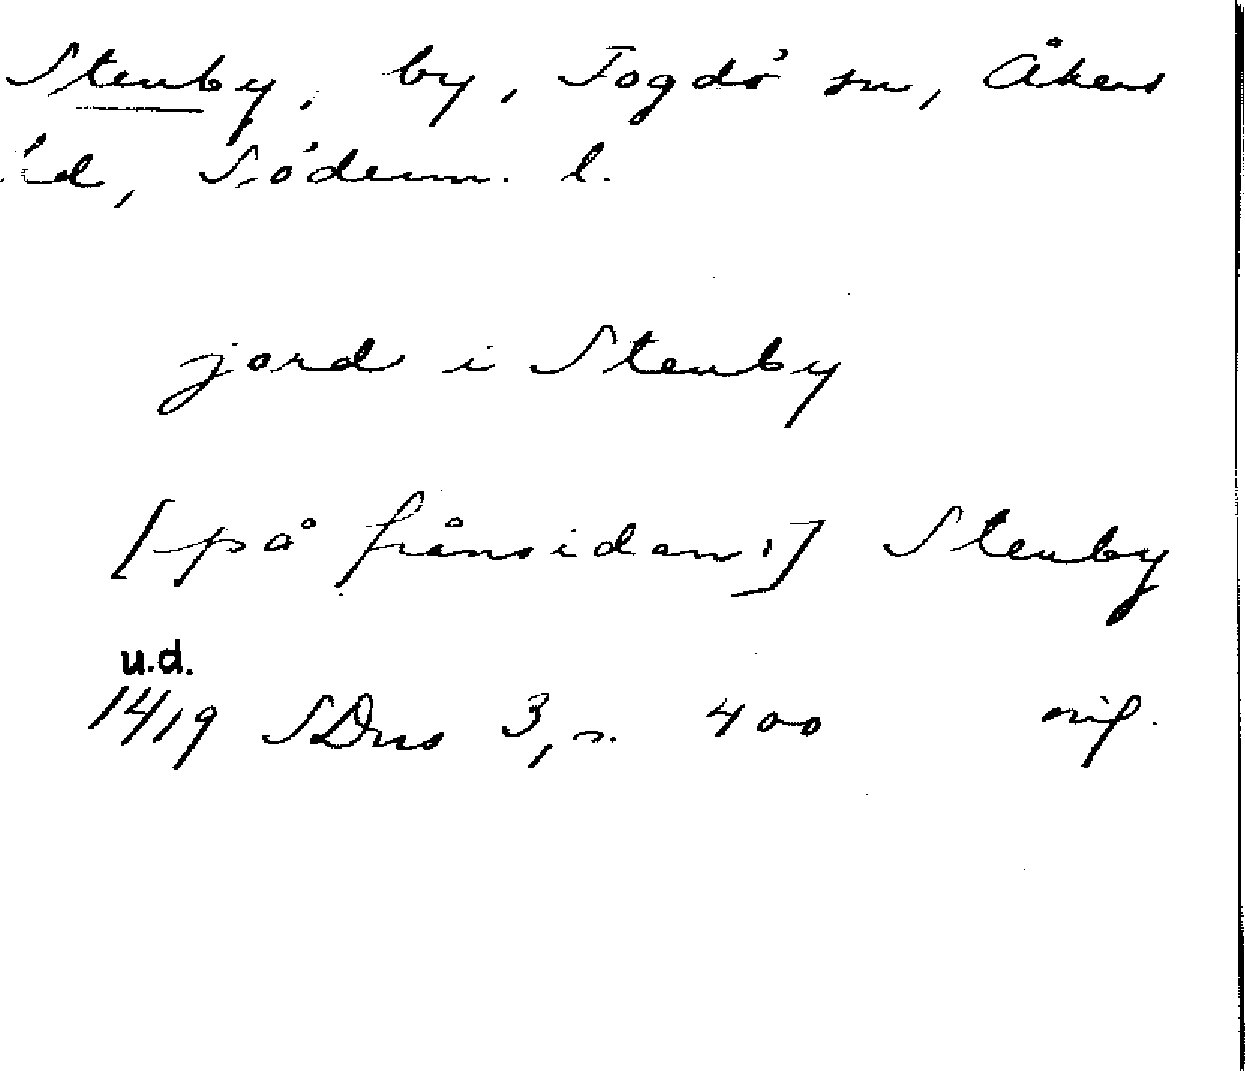 Stenby, by, Fogdö sn, Åkers
hd, Söderm. l.
jord i Stenby
[på frånsidan:] Stenby
u.d.
1419 SDns 3, s. 400 orig.